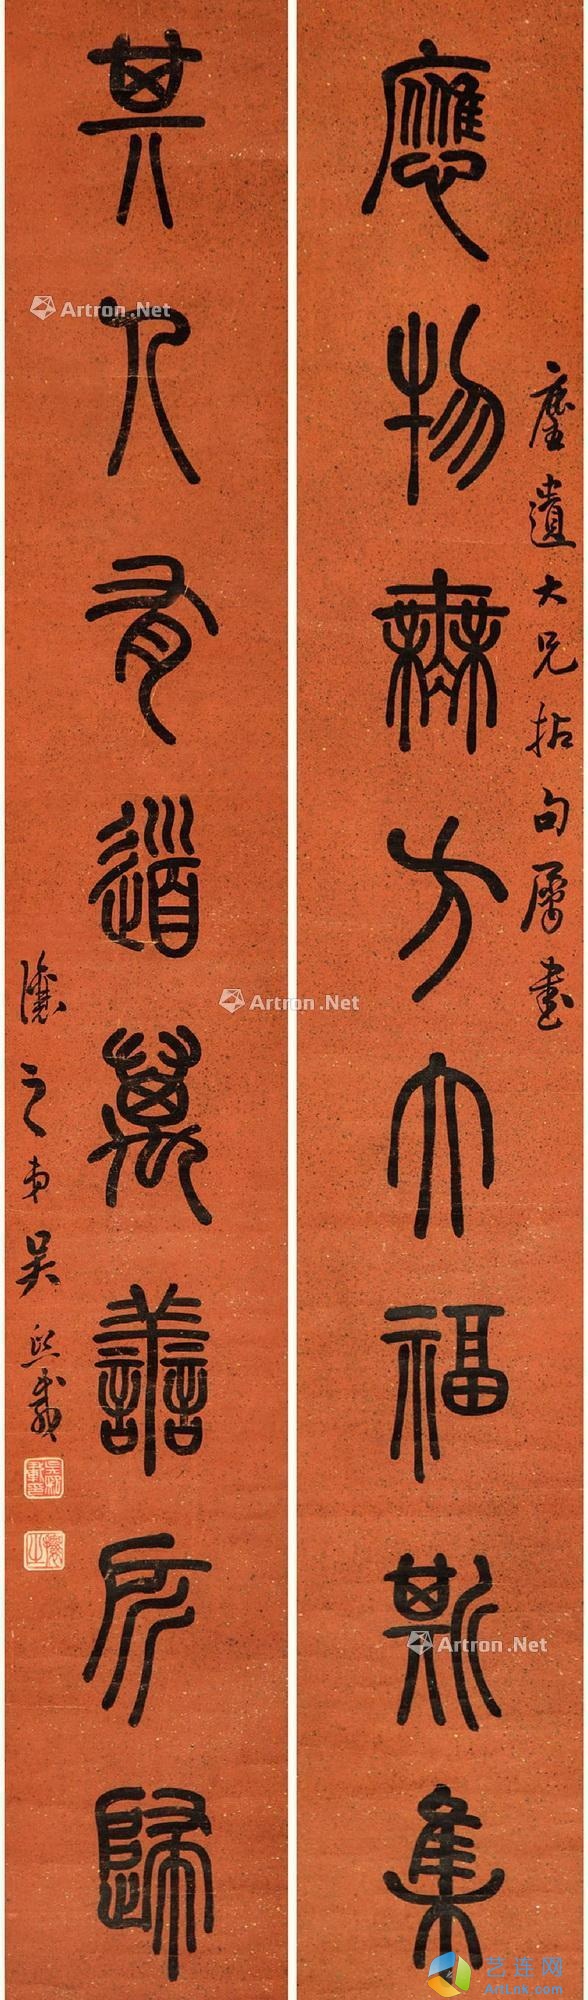 應物無方大福斯集
塵遺大兄拈句屬書
其人有道萬善所歸
讓之弟吳熙載
Artron.Net
Artron.Net
Artron.Net
艺连网
ArtLink.com